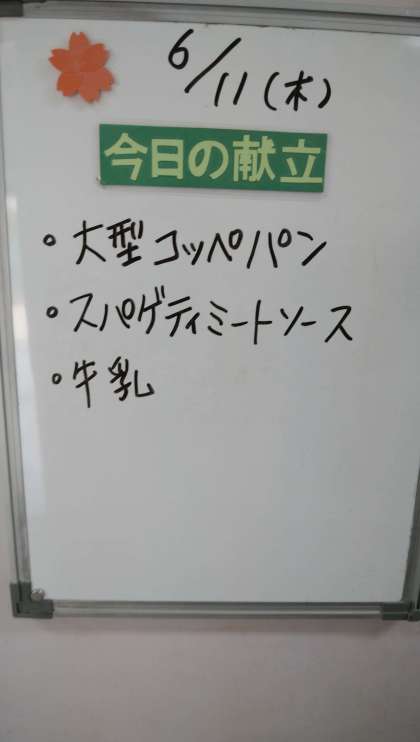 6/11(木)
今日の献立
・大型コッペパン
・スパゲティミートソース
・牛乳